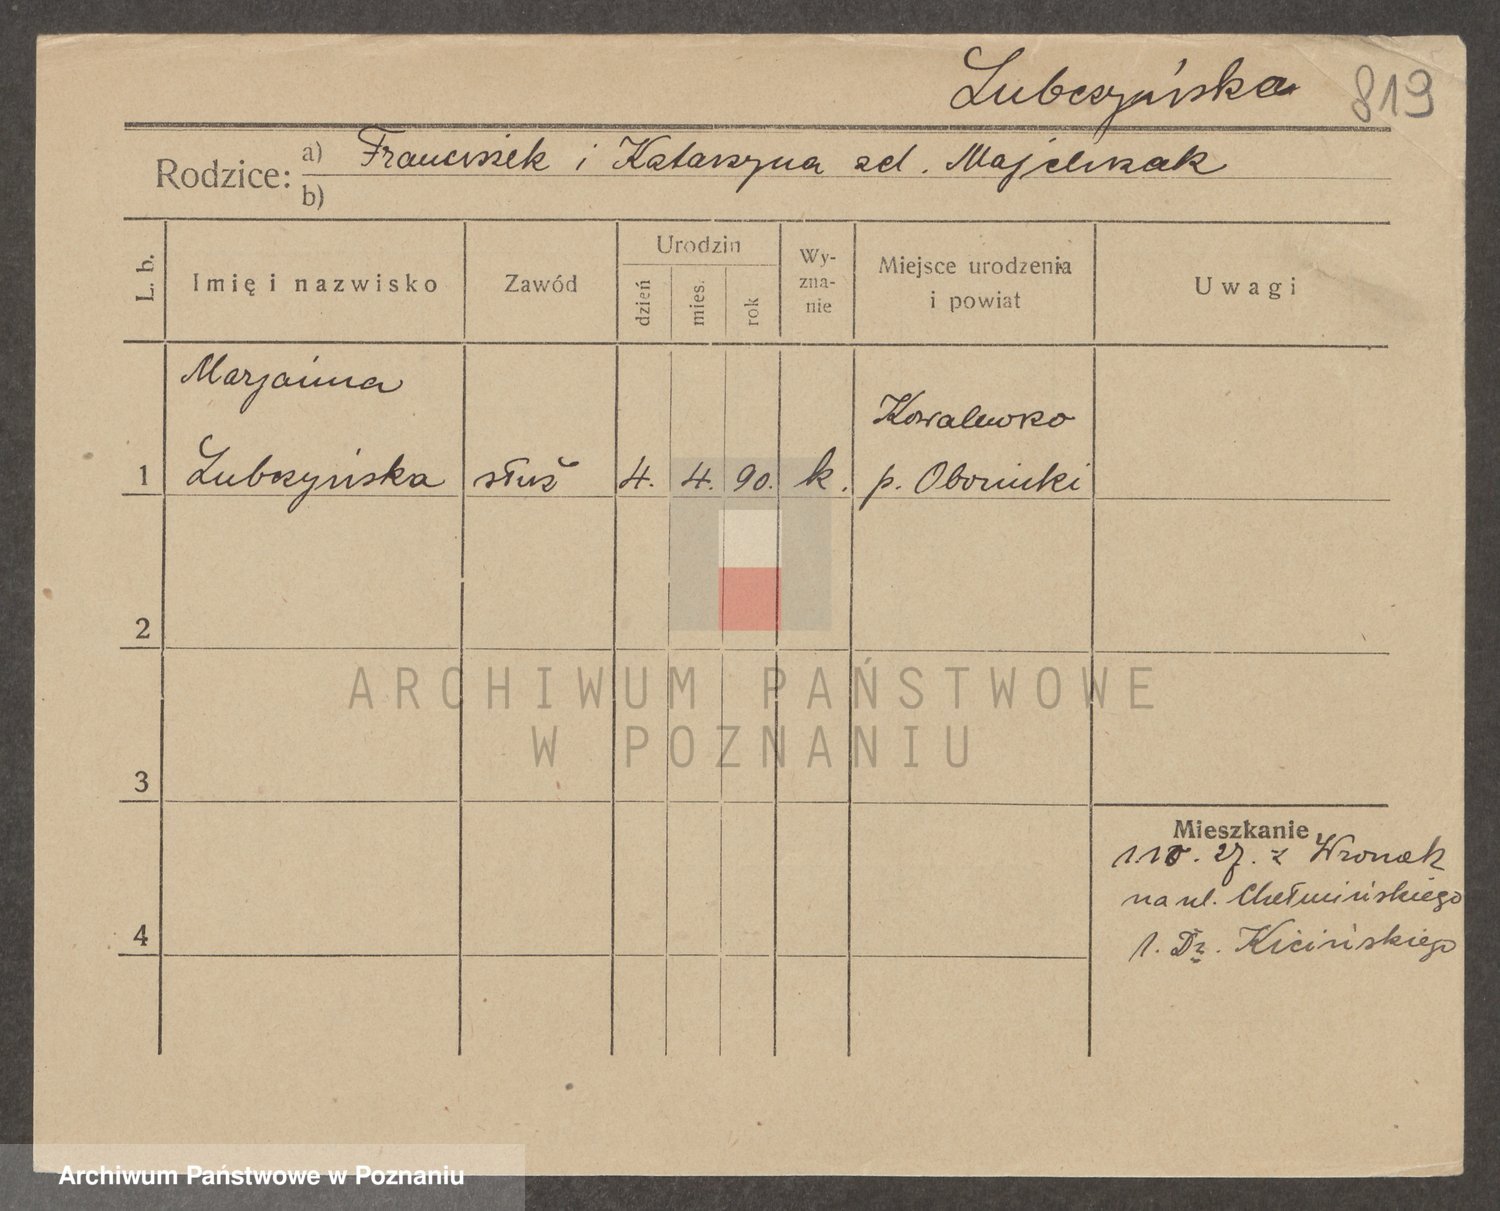 Lubczyńska 819
Rodzice: a) Franciszek i Katarzyna zd. Majchrzak
b)
L. b. Imię i nazwisko Zawód Urodzin dzień mies. rok Wy-zna-nie Miejsce urodzenia i powiat Uwagi
Marjanna
Kowalewko
1 Lubczyńska służ 4. 4. 90. k. p. Obornicki
2
ARCHIWUM PAŃSTWOWE
W POZNANIU
3
Mieszkanie
27. z Wronek
na ul. Chełmińskiego
4
1. Dz. Kicińskiego
Archiwum Państwowe w Poznaniu